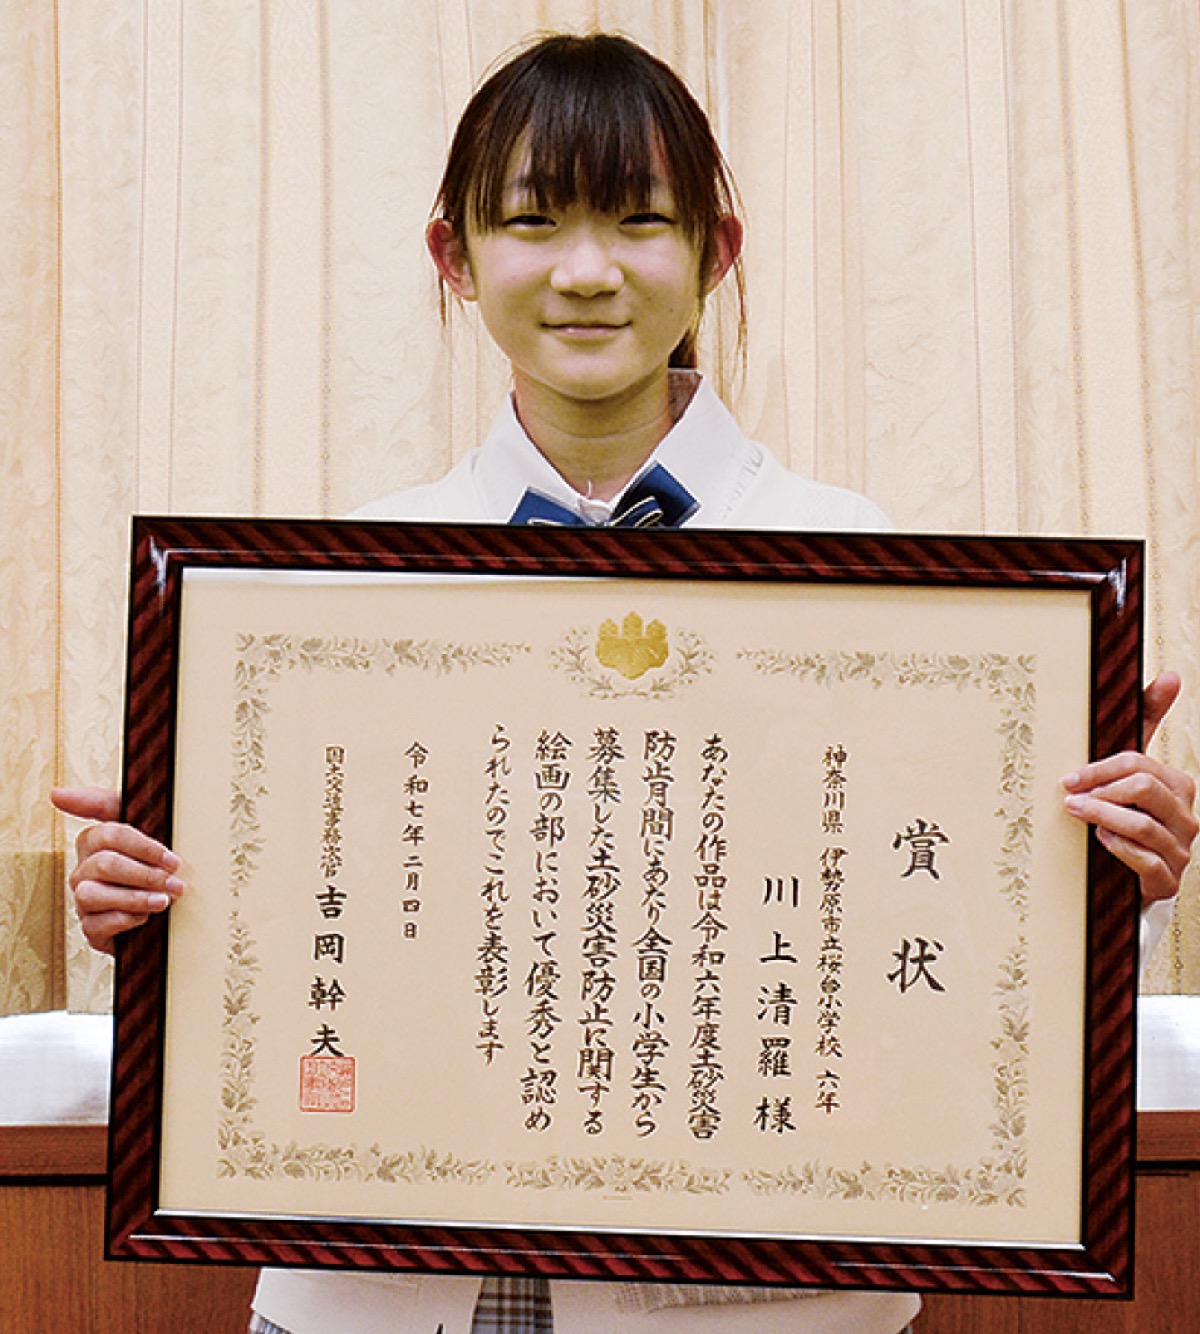 賞状
神奈川県 伊勢原市立桜台小学校 六年
川上清羅様
あなたの作品は令和六年度土砂災害
防止月間にあたり全国の小学生から
募集した土砂災害防止に関する
絵画の部において優秀と認め
られたのでこれを表彰します
令和七年二月四日
国土交通事務次官 吉岡幹夫